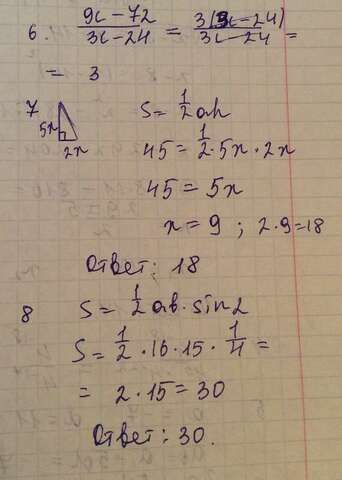 6. (9x-72)/(3x-24) = 3(3x-24)/(3x-24) =
= 3
7 5x 2x S = 1/2 ah
45 = 1/2 · 5x · 2x
45 = 5x
x = 9 ; 2·9=18
Ответ: 18
8 S = 1/2 ab · sin2
S = 1/2 · 16 · 15 · 1/4 =
= 2 · 15 = 30
Ответ: 30.